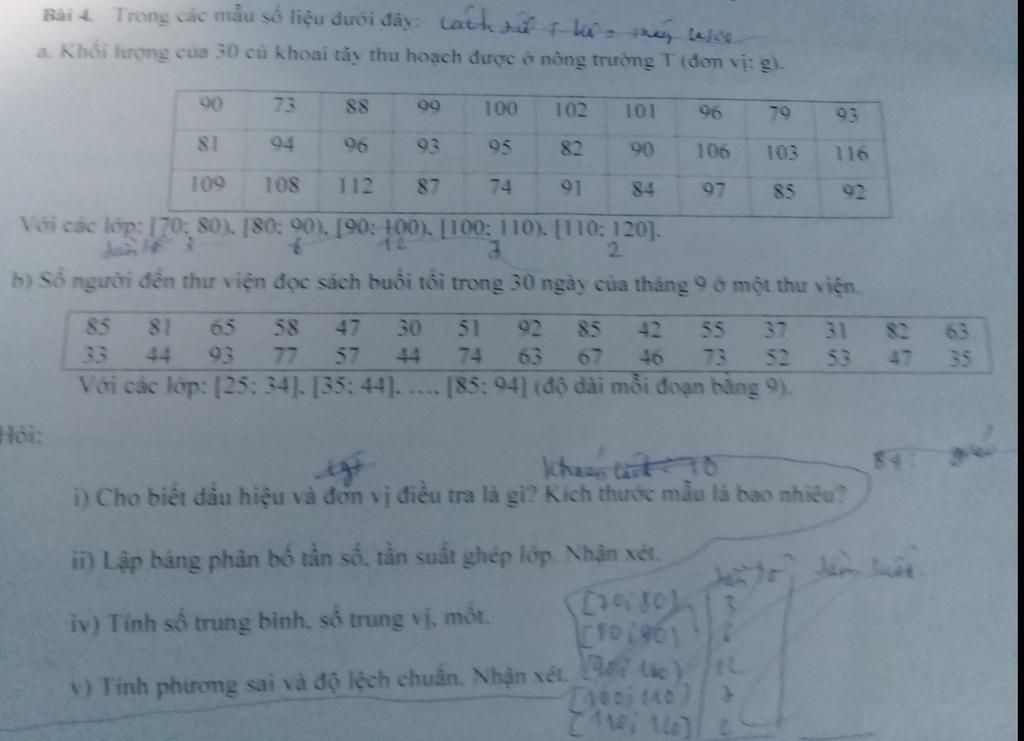 Bài 4. Trong các mẫu số liệu dưới đây:
a. Khối lượng của 30 củ khoai tây thu hoạch được ở nông trường T (đơn vị: g).
90 73 88 99 100 102 101 96 79 93
81 94 96 93 95 82 90 106 103 116
109 108 112 87 74 91 84 97 85 92
Với các lớp: [70; 80), [80; 90), [90; 100), [100; 110), [110; 120].
3 6 12 7 2
b) Số người đến thư viện đọc sách buổi tối trong 30 ngày của tháng 9 ở một thư viện.
85 81 65 58 47 30 51 92 85 42 55 37 31 82 63
33 44 93 77 57 44 74 63 67 46 73 52 53 47 35
Với các lớp: [25; 34], [35; 44], …, [85; 94] (độ dài mỗi đoạn bằng 9).
Hỏi:
i) Cho biết dấu hiệu và đơn vị điều tra là gì? Kích thước mẫu là bao nhiêu?
ii) Lập bảng phân bố tần số, tần suất ghép lớp. Nhận xét.
tần số tần suất
[70; 80) 3
iv) Tính số trung bình, số trung vị, mốt.
[80; 90) 6
[90; 100) 12
v) Tính phương sai và độ lệch chuẩn. Nhận xét.
[100; 110) 7